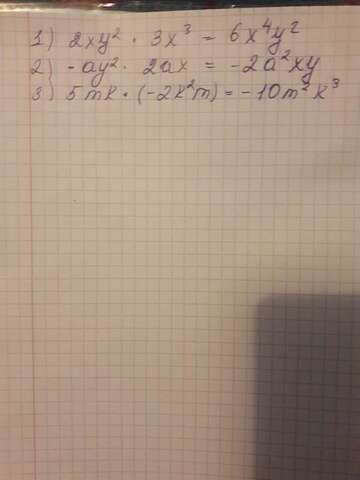 1) 2xy² · 3x³ = 6x⁴y²
2) -ay² · 2ax = -2a²xy
3) 5mk · (-2k²m) = -10m²k³